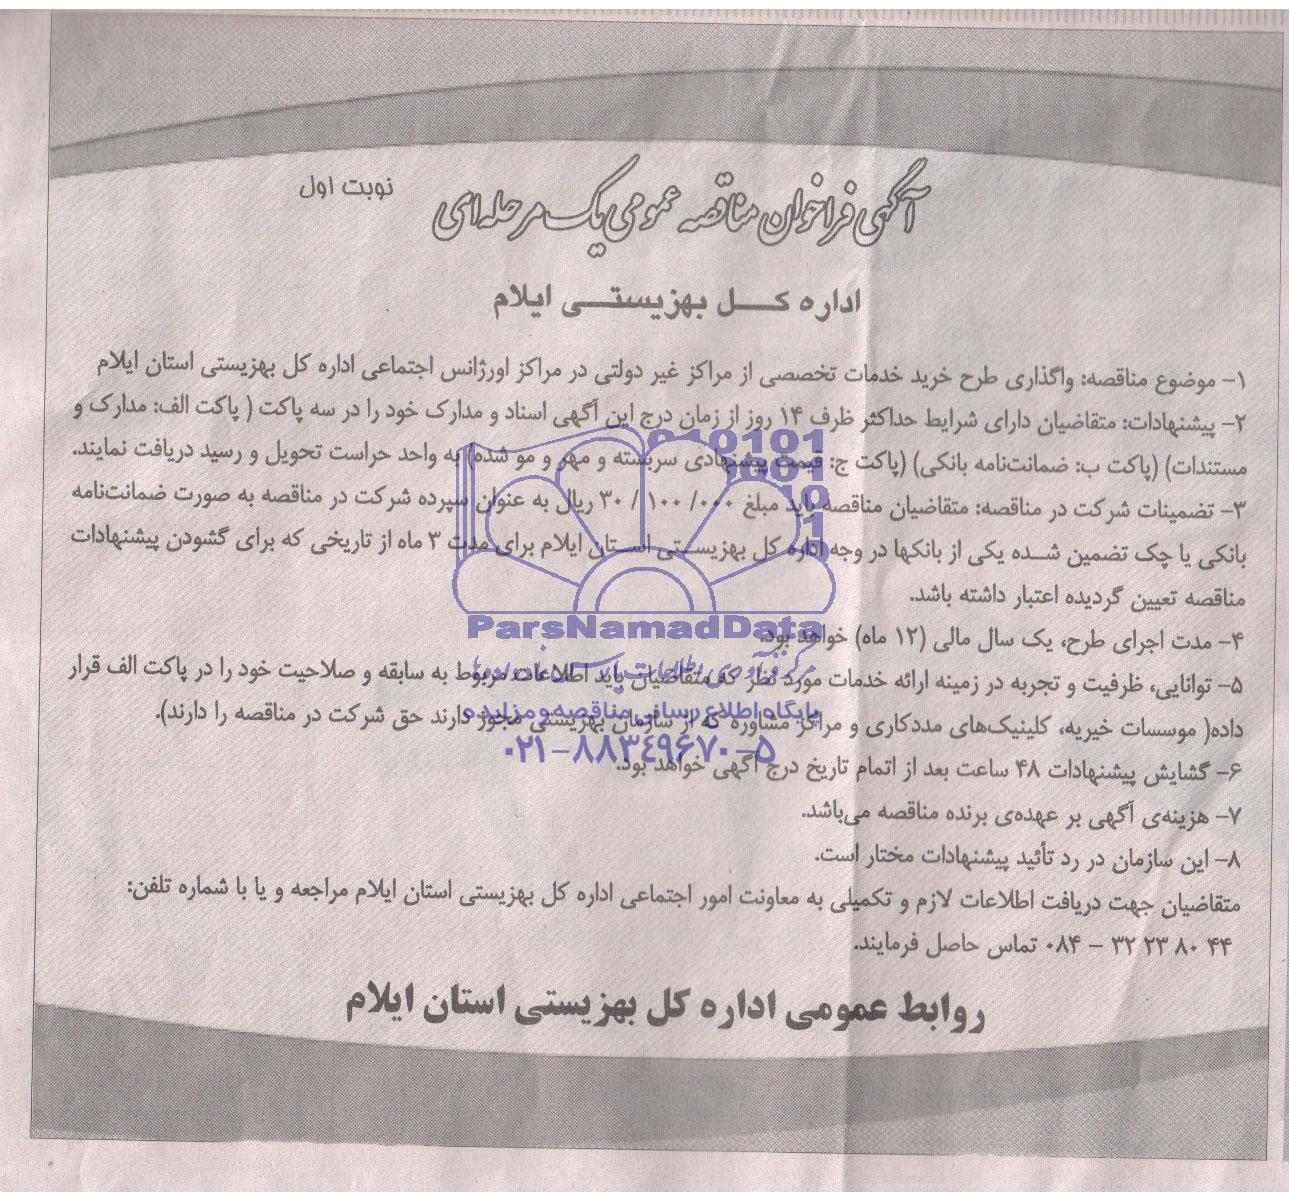 آگهی فراخوان مناقصه عمومی یک مرحله‌ای
نوبت اول
اداره کل بهزیستی ایلام
۱- موضوع مناقصه: واگذاری طرح خرید خدمات تخصصی از مراکز غیر دولتی در مراکز اورژانس اجتماعی اداره کل بهزیستی استان ایلام
۲- پیشنهادات: متقاضیان دارای شرایط حداکثر ظرف ۱۴ روز از زمان درج این آگهی اسناد و مدارک خود را در سه پاکت ( پاکت الف: مدارک و
مستندات) (پاکت ب: ضمانت‌نامه بانکی) (پاکت ج: قیمت پیشنهادی سربسته و مهر و مو شده) به واحد حراست تحویل و رسید دریافت نمایند.
۳- تضمینات شرکت در مناقصه: متقاضیان مناقصه باید مبلغ ۰۰۰/ ۱۰۰ / ۳۰ ریال به عنوان سپرده شرکت در مناقصه به صورت ضمانت‌نامه
بانکی یا چک تضمین شده یکی از بانکها در وجه اداره کل بهزیستی استان ایلام برای مدت ۳ ماه از تاریخی که برای گشودن پیشنهادات
مناقصه تعیین گردیده اعتبار داشته باشد.
۴- مدت اجرای طرح، یک سال مالی (۱۲ ماه) خواهد بود.
۵- توانایی، ظرفیت و تجربه در زمینه ارائه خدمات مورد نظر که متقاضیان باید اطلاعات مربوط به سابقه و صلاحیت خود را در پاکت الف قرار
داده( موسسات خیریه، کلینیک‌های مددکاری و مراکز مشاوره که از سازمان بهزیستی مجوز دارند حق شرکت در مناقصه را دارند).
۶- گشایش پیشنهادات ۴۸ ساعت بعد از اتمام تاریخ درج آگهی خواهد بود.
۷- هزینه‌ی آگهی بر عهده‌ی برنده مناقصه می‌باشد.
۸- این سازمان در رد تأئید پیشنهادات مختار است.
متقاضیان جهت دریافت اطلاعات لازم و تکمیلی به معاونت امور اجتماعی اداره کل بهزیستی استان ایلام مراجعه و یا با شماره تلفن:
۴۴ ۸۰ ۲۳ ۳۲ – ۰۸۴ تماس حاصل فرمایند.
روابط عمومی اداره کل بهزیستی استان ایلام
ParsNamadData
پایگاه اطلاع رسانی مناقصه و مزایده
۰۲۱-۸۸۳۴۹۶۷۰-۵